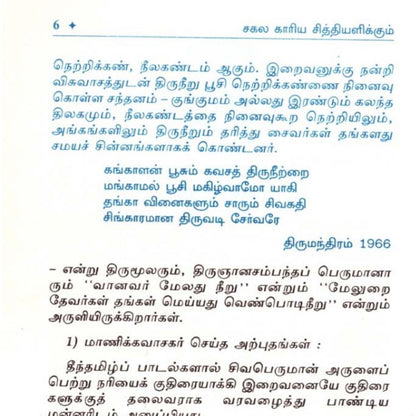 6 ✦ சகல காரிய சித்தியளிக்கும்
நெற்றிக்கண், நீலகண்டம் ஆகும். இறைவனுக்கு நன்றி
விசுவாசத்துடன் திருநீறு பூசி நெற்றிக்கண்ணை நினைவு
கொள்ள சந்தனம் – குங்குமம் அல்லது இரண்டும் கலந்த
திலகமும், நீலகண்டத்தை நினைவுகூற நெற்றியிலும்,
அங்கங்களிலும் திருநீறும் தரித்து சைவர்கள் தங்களது
சமயச் சின்னங்களாகக் கொண்டனர்.
கங்காளன் பூசும் கவசத் திருநீற்றை
மங்காமல் பூசி மகிழ்வாமோ யாகி
தங்கா வினைகளும் சாரும் சிவகதி
சிங்காரமான திருவடி சேர்வரே
திருமந்திரம் 1966
– என்று திருமூலரும், திருஞானசம்பந்தப் பெருமானா
ரும் ''வானவர் மேலது நீறு'' என்றும் ''மேலுறை
தேவர்கள் தங்கள் மெய்யது வெண்பொடிநீறு'' என்றும்
அருளியிருக்கிறார்கள்.
1) மாணிக்கவாசகர் செய்த அற்புதங்கள் :
தீந்தமிழ்ப் பாடல்களால் சிவபெருமான் அருளைப்
பெற்று நரியைக் குதிரையாக்கி இறைவனையே குதிரை
களுக்குத் தலைவராக வரவழைத்து பாண்டிய
மன்னரிடம் அனுப்பியது